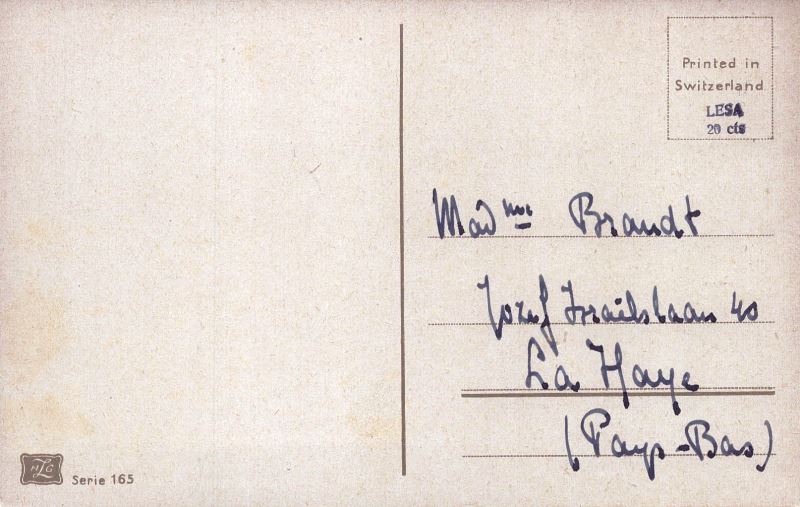 Printed in
Switzerland
LESA
20 cts
Madme Brandt
Jozef Israëlslaan 40
La Haye
(Pays-Bas)
Serie 165